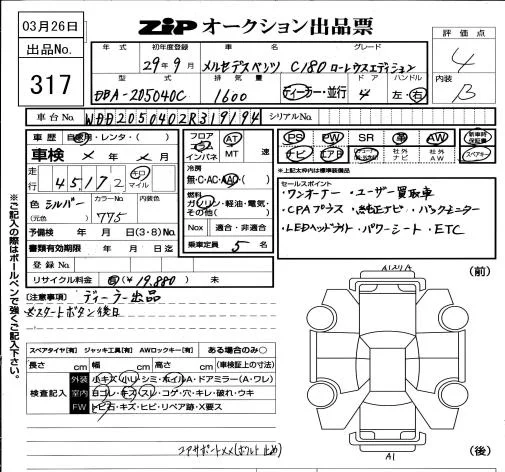 03月26日
ZIP オークション出品票
評価点
4
内装
B
出品No.
317
年式 初年度登録 車名 グレード
29年9月 メルセデスベンツ C180 ローレウスエディション
型式 排気量 ドア ハンドル
DBA-205040C 1600 ディーラー・並行 4 左・右
車台No. WDD2050402R319194 シリアルNo.
車歴 自家用・レンタ・( )
車検 × 年 × 月
走行 45,172 キロ マイル
色 シルバー (元色) カラーNo. 775 内装色
予備検 年 月(3・8)No.
書類有効期限 年 月 日迄
登録No.
リサイクル料金 有(¥19,880) 未
フロア コラム インパネ AT MT 速
冷房 無・C・AC・AAC( )
燃料 ガソリン・軽油・電気・その他( )
Nox 適合・非適合
乗車定員 5 名
PS PW SR 革 AW 新車時保証書
ナビ エアB 社外ナビ 社外AW スペアキー
*上記太枠内は標準装備品
セールスポイント
・ワンオーナー ・ユーザー買取車
・CPAプラス ・純正ナビ ・バックモニター
・LEDヘッドライト ・パワーシート ・ETC
【注意事項】 ディーラー出品
スタートボタン後日
※ご記入の際はボールペンで強くご記入下さい。
スペアタイヤ【有】 ジャッキ工具【有】 AWロックキー【有】 ある場合のみ○
長さ cm 幅 cm 高さ cm (車検証上の寸法)
検査記入
外装 小キズ・小凹・シミ・ホイルA・ドアミラー(A・ワレ)
室内 ヨゴレ・キズ・スレ・コゲ・穴・キレ・破れ・ウキ
FW トビ石・キズ・ヒビ・リペア跡・X要ス
コアサポートメメ(ボルト止め)
(前)
(後)
A1